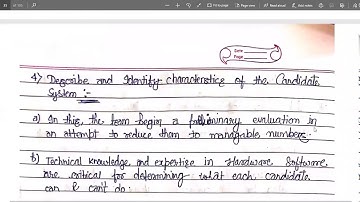 Date
Page
4) Describe and Identify characterstics of the Candidate
System :-
a) In this, the team begin a preliminary evaluation in
an attempt to reduce them to managable numbers.
b) Technical knowledge and expertise in Hardware Software
are critical for determining what each candidate
can & can't do.